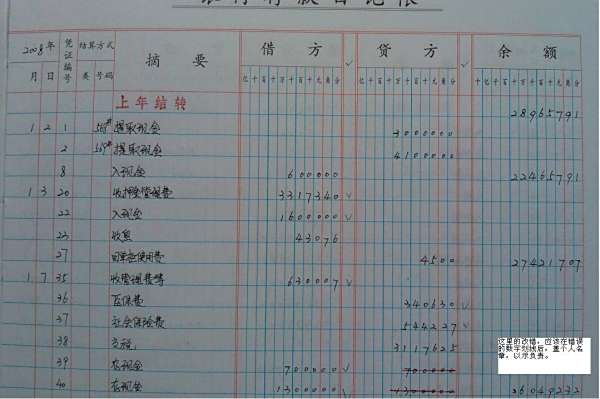 银行存款日记帐
2008年 凭证编号 结算方式 摘要 借方 √ 贷方 √ 余额
月 日 类 号码 亿千百十万千百十元角分 亿千百十万千百十元角分 亿千百十万千百十元角分
上年结转 28965791
1 2 1 提取现金 3000000
2 提取现金 4100000
8 入现金 600000 22465791
1 3 20 管理费 3317340 √
22 入现金 1600000 √
23 43076
27 使用费 4500 27421707
1 7 35 收管理费等 630007 √
36 医保费 340630 √
37 社会保险费 544227 √
38 3117625
39 存现金 700000 √ 700000
40 存现金 1300000 1300000 26049232
这里的改错，应该在错误
的数字划线后，盖个人名
章，以示负责。